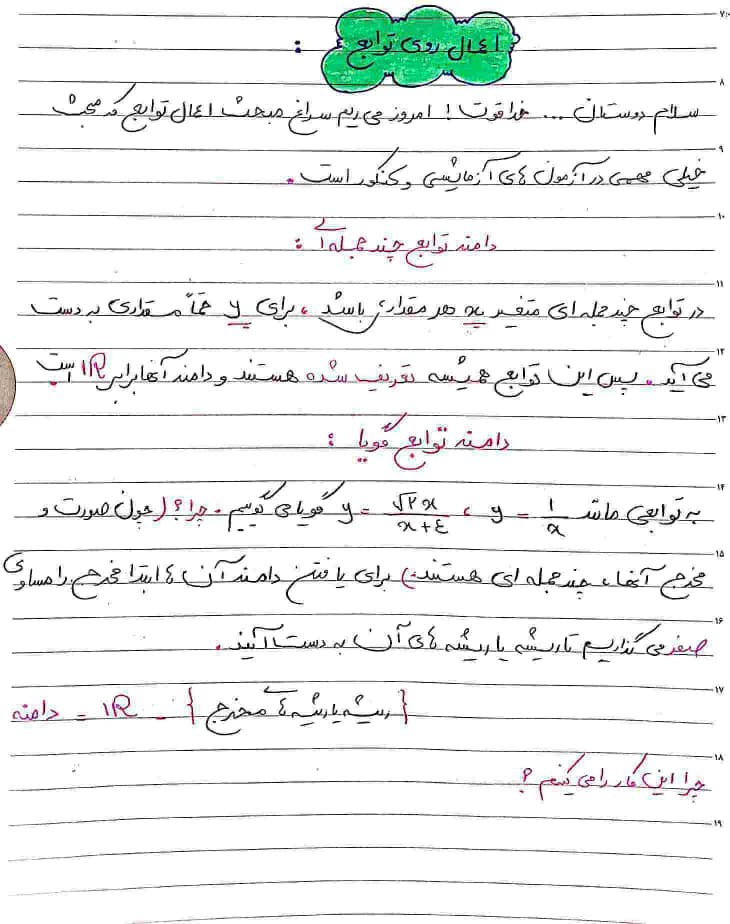 ۷:۰
اعمال روی توابع :
۸
سلام دوستان ... خدا قوت ! امروز می ریم سراغ مبحث اعمال توابع که مبحث
۹
خیلی مهمی در آزمون های آزمایشی و کنکور است .
۱۰
دامنه توابع چند جمله ای :
۱۱
در توابع چند جمله ای متغیر x هر مقداری باشد ، برای y حتماً مقداری به دست
۱۲
می آید . پس این توابع همیشه تعریف شده هستند و دامنه آنها برابر IR است .
۱۳
دامنه توابع گویا :
۱۴
به توابعی مانند y = 1/x ، y = √۲x/x+٤ گویا می گوییم . چرا ؟ (چون صورت و
۱۵
مخرج آنها ، چند جمله ای هستند .) برای یافتن دامنه آن ها ابتدا مخرج را مساوی
۱۶
صفر می گذاریم تا ریشه یا ریشه های آن به دست آیند .
۱۷
دامنه = IR - { ریشه یا ریشه های مخرج }
۱۸
چرا این کار را می کنیم ؟
۱۹